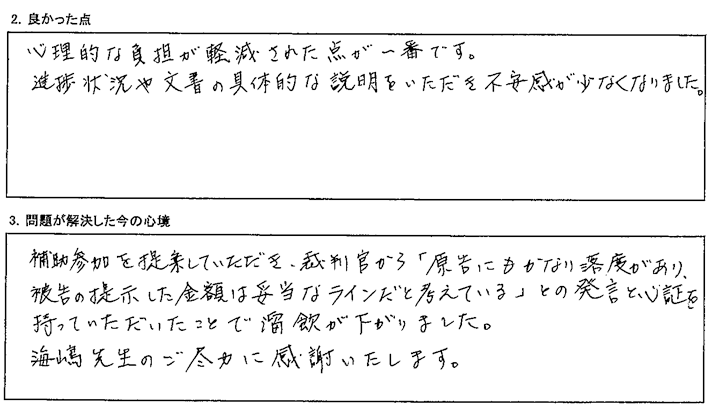 2. 良かった点
心理的な負担が軽減された点が一番です。
進捗状況や文書の具体的な説明をいただき不安感が少なくなりました。
3. 問題が解決した今の心境
補助参加を提案していただき、裁判官から「原告にもかなり落度があり、
被告の提示した金額は妥当なラインだと考えている」との発言と心証を
持っていただいたことで溜飲が下がりました。
海嶋先生のご尽力に感謝いたします。